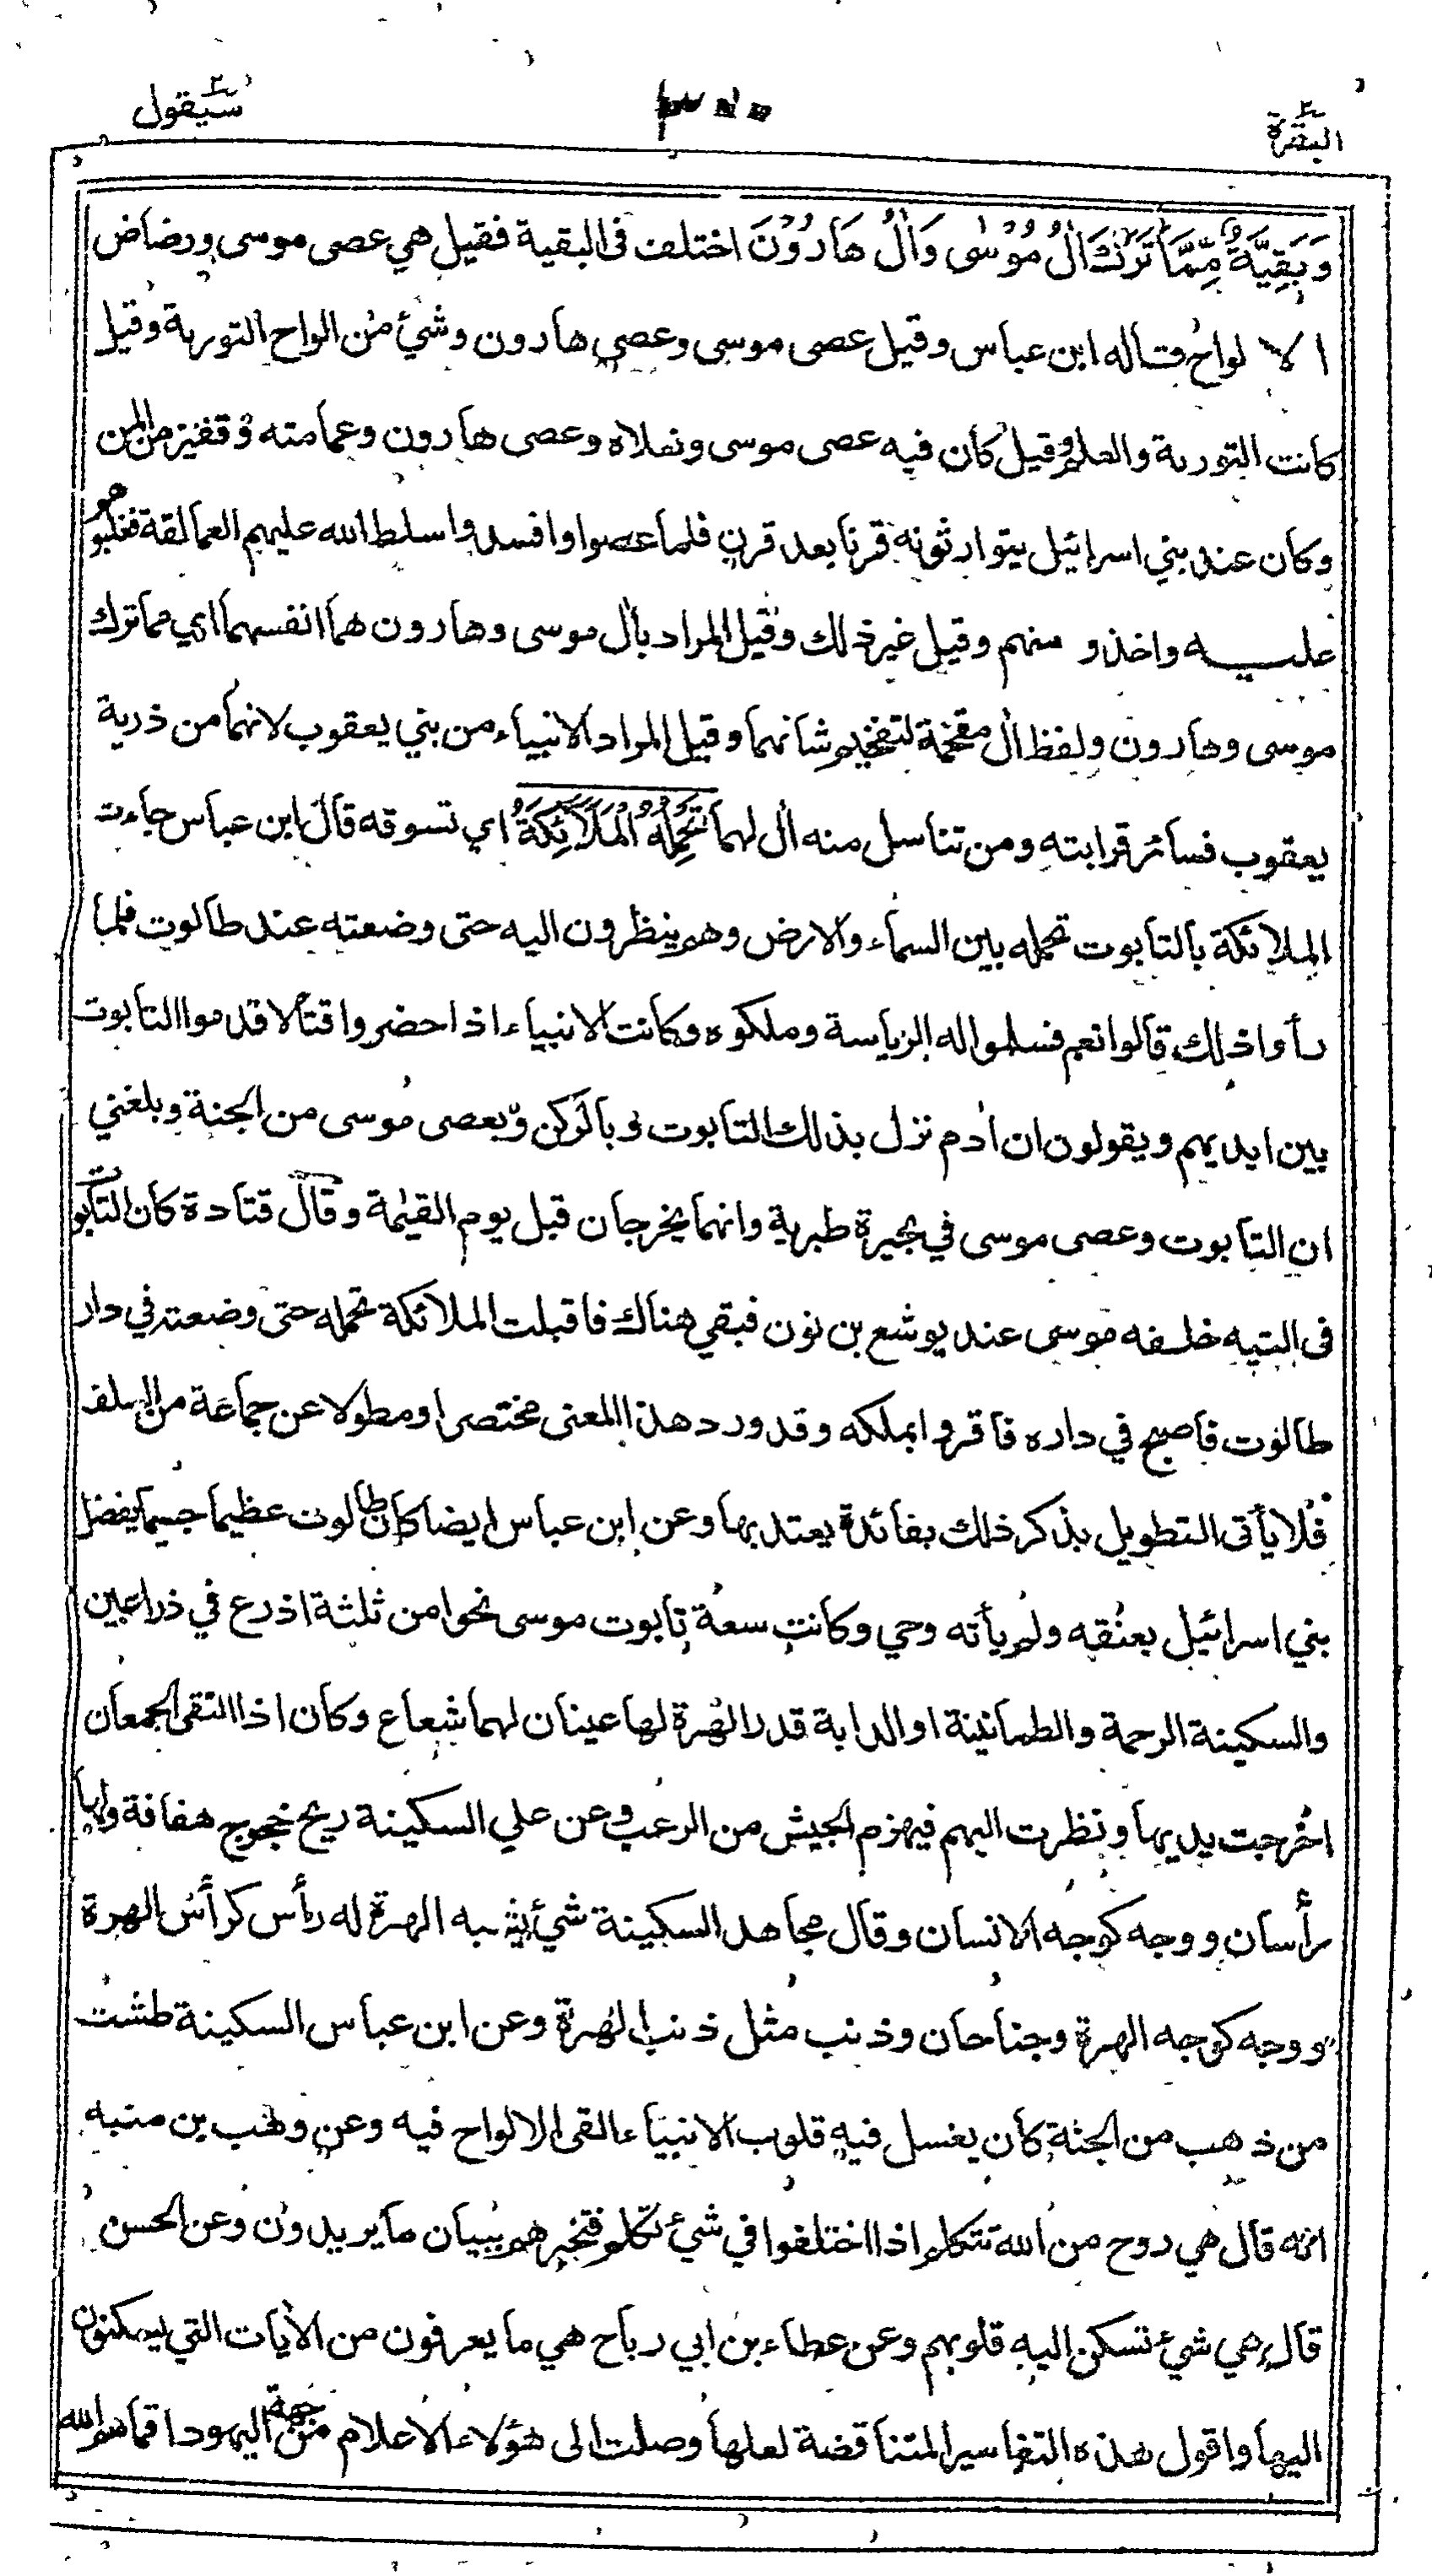 البقرة ٢
سيقول ٢
وَبَقِيَّةٌ مِّمَّا تَرَكَ اٰلُ مُوْسٰى وَاٰلُ هَارُوْنَ اختلف فى البقية فقيل هي عصى موسى ورضاض
الالواح قاله ابن عباس وقيل عصى موسى وعصى هارون وشئ من الواح التورية وقيل
كانت التورية والعلم وقيل كان فيه عصى موسى ونعلاه وعصى هارون وعمامته وقفيز من المن
وكان عند بني اسرائيل يتوارثونه قرنا بعد قرن فلما عصوا وافسدوا سلط الله عليهم العمالقة فغلبوهم
عليه واخذو منهم وقيل غير ذلك وقيل المراد بأل موسى وهارون هما انفسهما اي مما ترك
موسى وهارون ولفظ أل مقحمة لتفخيم شانهما وقيل المراد الانبياء من بني يعقوب لانهما من ذرية
يعقوب فسائر قرابته ومن تناسل منه أل لهما تَحْمِلُهُ الْمَلَآئِكَةُ اي تسوقه قال ابن عباس جاءت
الملائكة بالتابوت تحمله بين السماء والارض وهم ينظرون اليه حتى وضعته عند طالوت فلما
رأوا ذلك قالوا نعم فسلموا له الرياسة وملكوه وكانت الانبياء اذا حضروا قتالا قدموا التابوت
بين ايديهم ويقولون ان أدم نزل بذلك التابوت وبالركن وبعصى موسى من الجنة وبلغني
ان التابوت وعصى موسى في بحيرة طبرية وانهما يخرجان قبل يوم القيمة وقال قتادة كان التابوت
فى التيه خلفه موسى عند يوشع بن نون فبقي هناك فاقبلت الملائكة تحمله حتى وضعته في دار
طالوت فاصبح في داره فاقروا بملكه وقد ورد هذا المعنى مختصرا ومطولا عن جماعة من السلف
فلا يأتى التطويل بذكر ذلك بفائدة يعتد بها وعن ابن عباس ايضا كان طالوت عظيما جسيما يفضل
بني اسرائيل بعنقه ولم يأته وحي وكانت سعة تابوت موسى نحوا من ثلثة اذرع في ذراعين
والسكينة الرحمة والطمانينة او الدابة قدر الهرة لها عينان لهما شعاع وكان اذا التقى الجمعان
اخرجت يديها ونظرت اليهم فيهزم الجيش من الرعب وعن علي السكينة ريح خجوج هفافة ولها
رأسان ووجه كوجه الانسان وقال مجاهد السكينة شئ يشبه الهرة له رأس كرأس الهرة
ووجه كوجه الهرة وجناحان وذنب مثل ذنب الهرة وعن ابن عباس السكينة طشت
من ذهب من الجنة كان يغسل فيه قلوب الانبياء القى الالواح فيه وعن وهب بن منبه
انه قال هي روح من الله تتكلم اذا اختلفوا في شئ تكلم فتخبرهم ببيان ما يريدون وعن الحسن
قال هي شئ تسكن اليه قلوبهم وعن عطاء بن ابي رباح هي ما يعرفون من الأيات التي يسكنون
اليها واقول هذه التفاسير المتناقضة لعلها وصلت الى هؤلاء الاعلام من جهة اليهود اقماهم الله